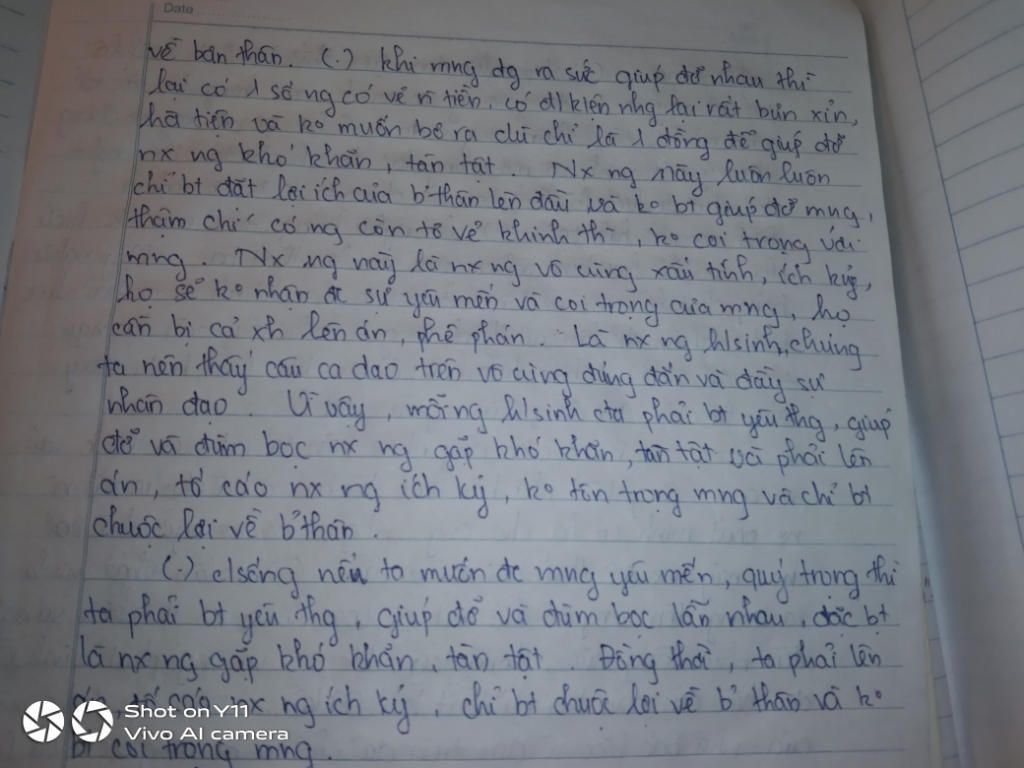 Date
về bản thân. (.) khi mng đg ra sức giúp đỡ nhau thì
lại có 1 số ng có vẻ n tiền, có đ/kiện nhg lại rất bủn xỉn,
hà tiện và ko muốn bỏ ra dù chỉ là 1 đồng để giúp đỡ
nx ng khó khăn, tàn tật. Nx ng này luôn luôn
chỉ bt đặt lợi ích của b' thân lên đầu và ko bt giúp đỡ mng,
thậm chí có ng còn tỏ vẻ khinh thì, ko coi trọng với
mng. Nx ng này là nx ng vô cùng xấu tính, ích kỷ,
họ sẽ ko nhận đc sự yêu mến và coi trọng của mng, họ
cần bị cả xh lên án, phê phán. Là nx ng h/sinh, chúng
ta nên thấy câu ca dao trên vô cùng đúng đắn và đầy sự
nhân đạo. Vì vậy, mỗi ng h/sinh cta phải bt yêu thg, giúp
đỡ và đùm bọc nx ng gặp khó khăn, tàn tật và phải lên
án, tố cáo nx ng ích kỷ, ko tôn trọng mng và chỉ bt
chuộc lợi về b' thân.
(.) c/sống nếu ta muốn đc mng yêu mến, quý trọng thì
ta phải bt yêu thg, giúp đỡ và đùm bọc lẫn nhau, đặc bt
là nx ng gặp khó khăn, tàn tật. Đồng thời, ta phải lên
án, tố cáo nx ng ích kỷ, chỉ bt chuộc lợi về b' thân và ko
bt coi trọng mng.
Shot on Y11
Vivo AI camera